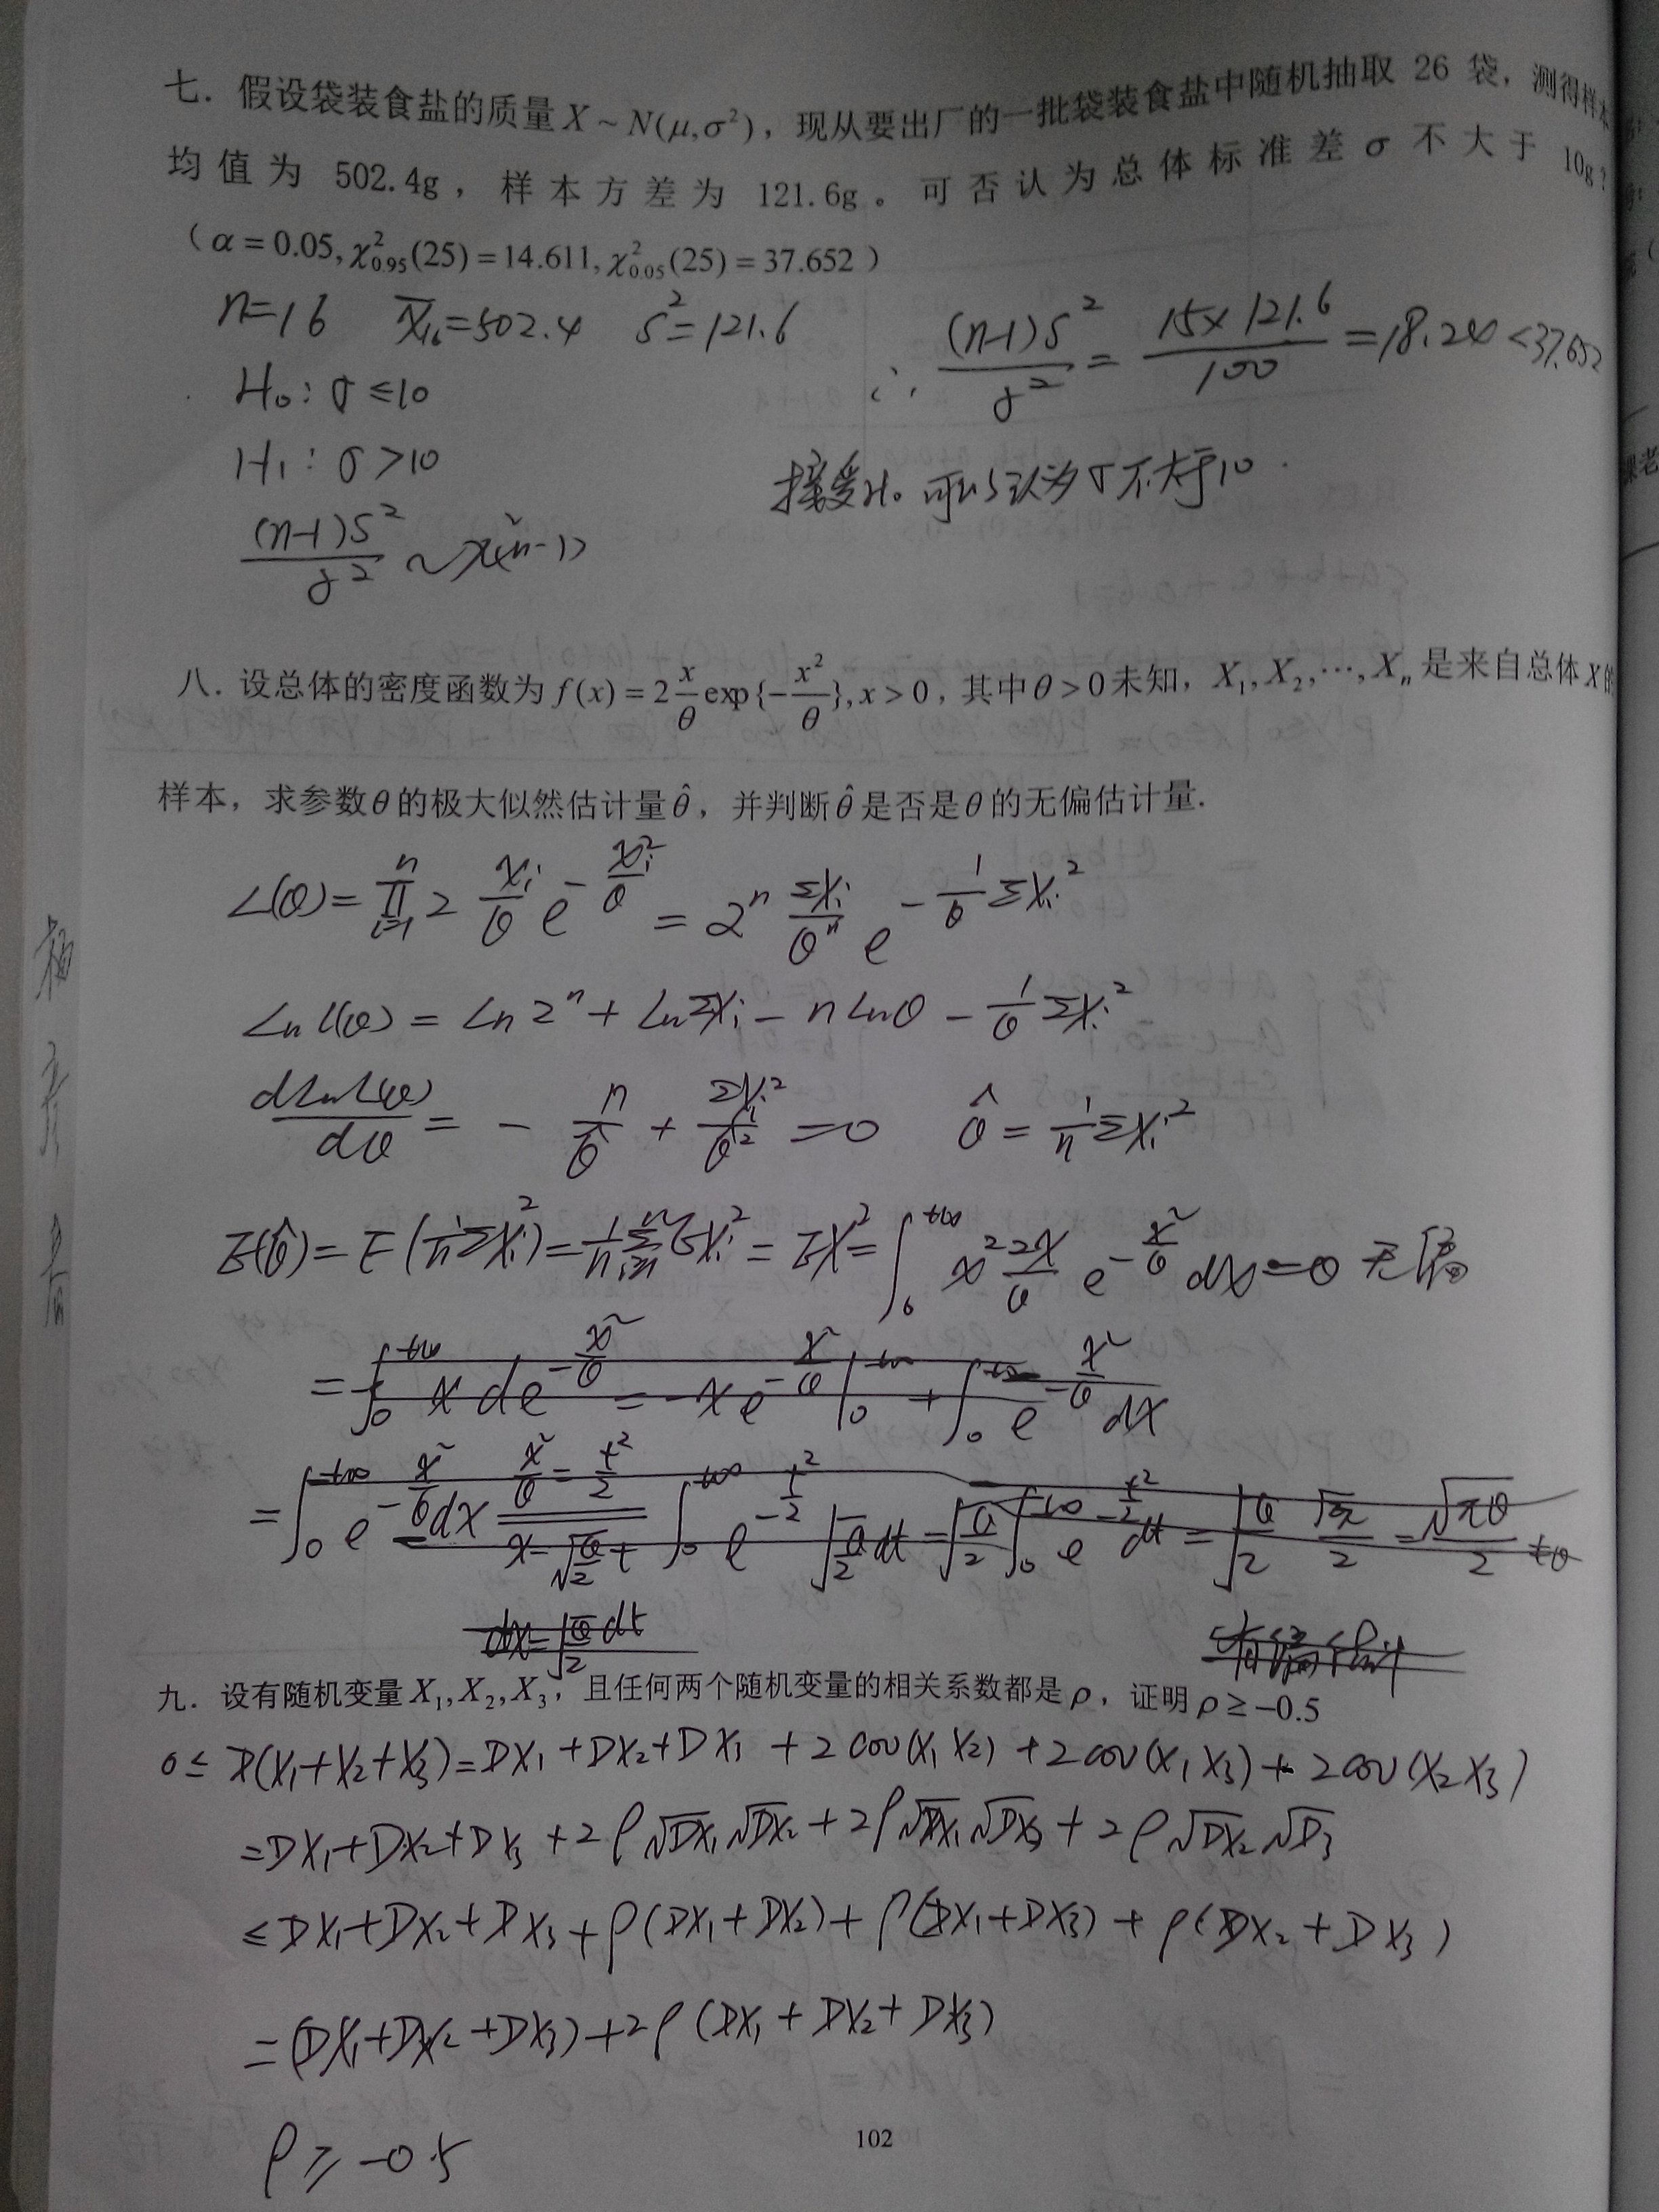 七. 假设袋装食盐的质量 X ~ N(μ,σ²), 现从要出厂的一批袋装食盐中随机抽取 26 袋, 测得样本
均值为 502.4g, 样本方差为 121.6g。可否认为总体标准差 σ 不大于 10g?
(α = 0.05, χ²₀.₉₅(25) = 14.611, χ²₀.₀₅(25) = 37.652)
n=16 X̄₁₆=502.4 S²=121.6
∴ (n-1)S²/σ² = 15×121.6/100 = 18.240 < 37.652
H₀: σ ≤ 10
H₁: σ > 10
接受H₀ 可以认为σ不大于10.
(n-1)S²/σ² ~ χ²(n-1)
八. 设总体的密度函数为 f(x) = 2 x/θ exp{-x²/θ}, x > 0, 其中 θ > 0 未知, X₁, X₂, ⋯, Xₙ 是来自总体 X 的
样本, 求参数 θ 的极大似然估计量 θ̂, 并判断 θ̂ 是否是 θ 的无偏估计量.
L(θ) = ∏ⁿᵢ₌₁ 2 xᵢ/θ e^(-xᵢ²/θ) = 2ⁿ ΣXᵢ/θⁿ e^(-1/θ ΣXᵢ²)
Ln L(θ) = Ln 2ⁿ + Ln ΣXᵢ - n Ln θ - 1/θ ΣXᵢ²
dLnL(θ)/dθ = - n/θ + ΣXᵢ²/θ² = 0 θ̂ = 1/n ΣXᵢ²
E(θ̂) = E(1/n ΣXᵢ²) = 1/n Σ EXᵢ² = EX² = ∫₀^(+∞) x² 2x/θ e^(-x²/θ) dx = θ 无偏
= -∫₀^(+∞) x d e^(-x²/θ) = -x e^(-x²/θ) |₀^(+∞) + ∫₀^(+∞) e^(-x²/θ) dx
= ∫₀^(+∞) e^(-x²/θ) dx x²/θ = t²/2 x = √(θ/2) t ∫₀^(+∞) e^(-t²/2) √(θ/2) dt = √(θ/2) ∫₀^(+∞) e^(-t²/2) dt = √(θ/2) √(2π)/2 = √(πθ)/2 ≠ θ
dx = √(θ/2) dt 有偏估计
九. 设有随机变量 X₁, X₂, X₃, 且任何两个随机变量的相关系数都是 ρ, 证明 ρ ≥ -0.5
0 ≤ D(X₁+X₂+X₃) = DX₁+DX₂+DX₃ + 2cov(X₁X₂) + 2cov(X₁X₃) + 2cov(X₂X₃)
= DX₁+DX₂+DX₃ + 2ρ√DX₁√DX₂ + 2ρ√DX₁√DX₃ + 2ρ√DX₂√D₃
≤ DX₁+DX₂+DX₃ + ρ(DX₁+DX₂) + ρ(DX₁+DX₃) + ρ(DX₂+DX₃)
= (DX₁+DX₂+DX₃) + 2ρ(DX₁+DX₂+DX₃)
ρ ≥ -0.5
102